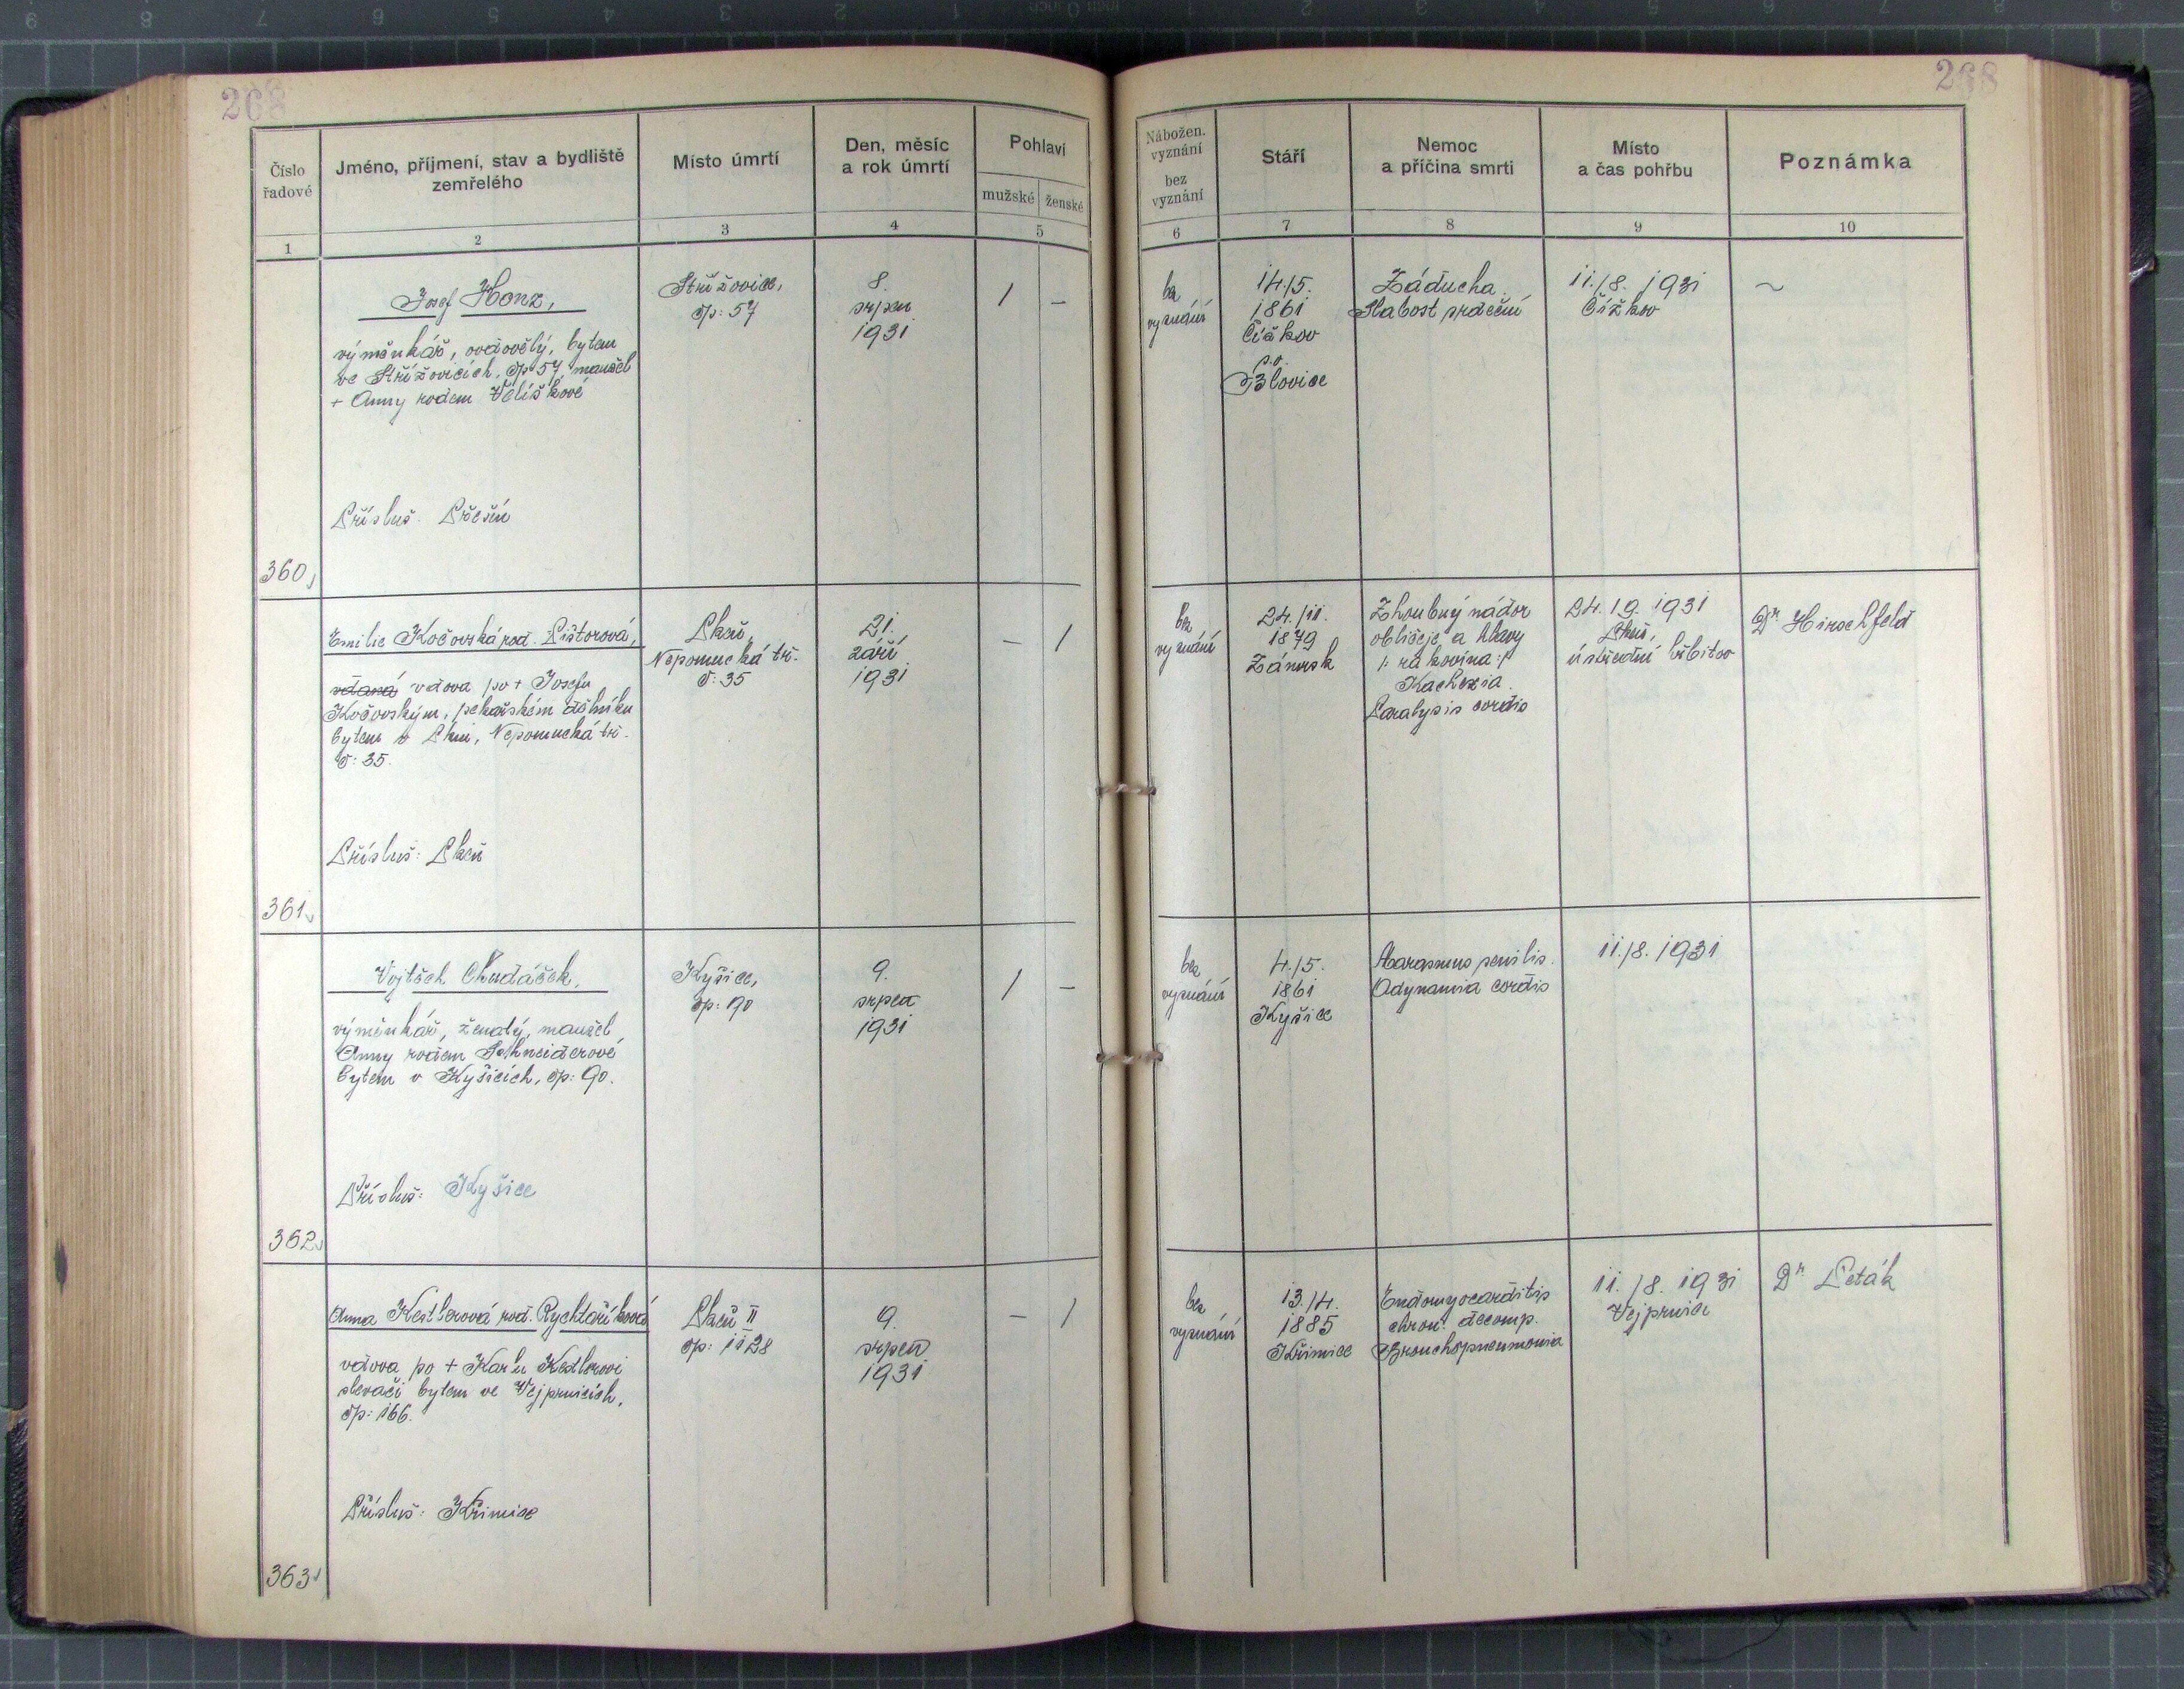 268
268
Číslo řadové
Jméno, příjmení, stav a bydliště zemřelého
Místo úmrtí
Den, měsíc a rok úmrtí
Pohlaví
mužské
ženské
Nábožen. vyznání
bez vyznání
Stáří
Nemoc a příčina smrti
Místo a čas pohřbu
Poznámka
1
2
3
4
5
6
7
8
9
10
360
Josef Honz,
výměnkář, ovdovělý, bytem
ve Střížovicích, čp 57, manžel
+ Anny rodem Velíškové
Přísluš.
Střížovice,
čp: 57
8.
srpen
1931
1
–
bez
vyznání
14./5.
1861
Čížkov
p.o.
Blovice
Záducha.
Slabost srdeční
11./8. 1931
Čížkov
~
361
Emilie Kočovská roz. Pištorová,
vdaná vdova po + Josefu
Kočovským, pekařském dělníku
bytem v Plzni, Nepomucká tř.
č: 35.
Přísluš: Plzeň
Plzeň,
Nepomucká tř.
č: 35
21.
září
1931
–
1
bez
vyznání
24./11.
1879
Zámrsk
Zhoubný nádor
obličeje a hlavy
/: rakovina :/
Kachexia.
Paralysis cordis
24./9. 1931
Plzeň,
ústřední hřbitov
Dr Hirschfeld
362
Vojtěch Chudáček,
výměnkář, ženatý, manžel
Anny rodem Schneiderové
bytem v Kyšicích, čp: 90.
Přísluš: Kyšice
Kyšice,
čp: 90
9.
srpen
1931
1
–
bez
vyznání
4./5.
1861
Kyšice
Marasmus senilis.
Adynamia cordis
11./8. 1931
363
Anna Kestlerová roz. Rychtaříková
vdova po + Karlu Kestlerovi
slevači bytem ve Vejprnicích,
čp: 166.
Přísluš: Křimice
Plzeň II
čp: 1128
9.
srpen
1931
–
1
bez
vyznání
13./4.
1885
Křimice
Endomyocarditis
chron. decomp.
Bronchopneumonia
11./8. 1931
Vejprnice
Dr Peták